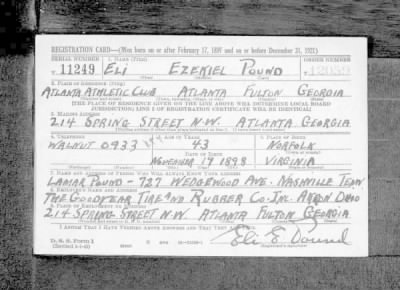 REGISTRATION CARD—(Men born on or after February 17, 1897 and on or before December 31, 1921)
SERIAL NUMBER 1. NAME (Print) ORDER NUMBER
T 11249 ELI EZEKIEL POUND 12039
(First) (Middle) (Last)
2. PLACE OF RESIDENCE (Print)
ATLANTA ATHLETIC CLUB ATLANTA FULTON GEORGIA
[THE PLACE OF RESIDENCE GIVEN ON THE LINE ABOVE WILL DETERMINE LOCAL BOARD
JURISDICTION; LINE 2 OF REGISTRATION CERTIFICATE WILL BE IDENTICAL]
3. MAILING ADDRESS
214 SPRING STREET N.W. ATLANTA GEORGIA
4. TELEPHONE 5. AGE IN YEARS 6. PLACE OF BIRTH
WALNUT 0933 43 NORFOLK
DATE OF BIRTH
NOVEMBER 19 1898 VIRGINIA
7. NAME AND ADDRESS OF PERSON WHO WILL ALWAYS KNOW YOUR ADDRESS
LAMAR POUND - 727 WEDGEWOOD AVE. NASHVILLE TENN
8. EMPLOYER'S NAME AND ADDRESS
THE GOODYEAR TIRE AND RUBBER CO-INC. AKRON OHIO
9. PLACE OF EMPLOYMENT OR BUSINESS
214 SPRING STREET N.W. ATLANTA FULTON GEORGIA
I AFFIRM THAT I HAVE VERIFIED ABOVE ANSWERS AND THAT THEY ARE TRUE.
D. S. S. Form 1 Eli E Pound